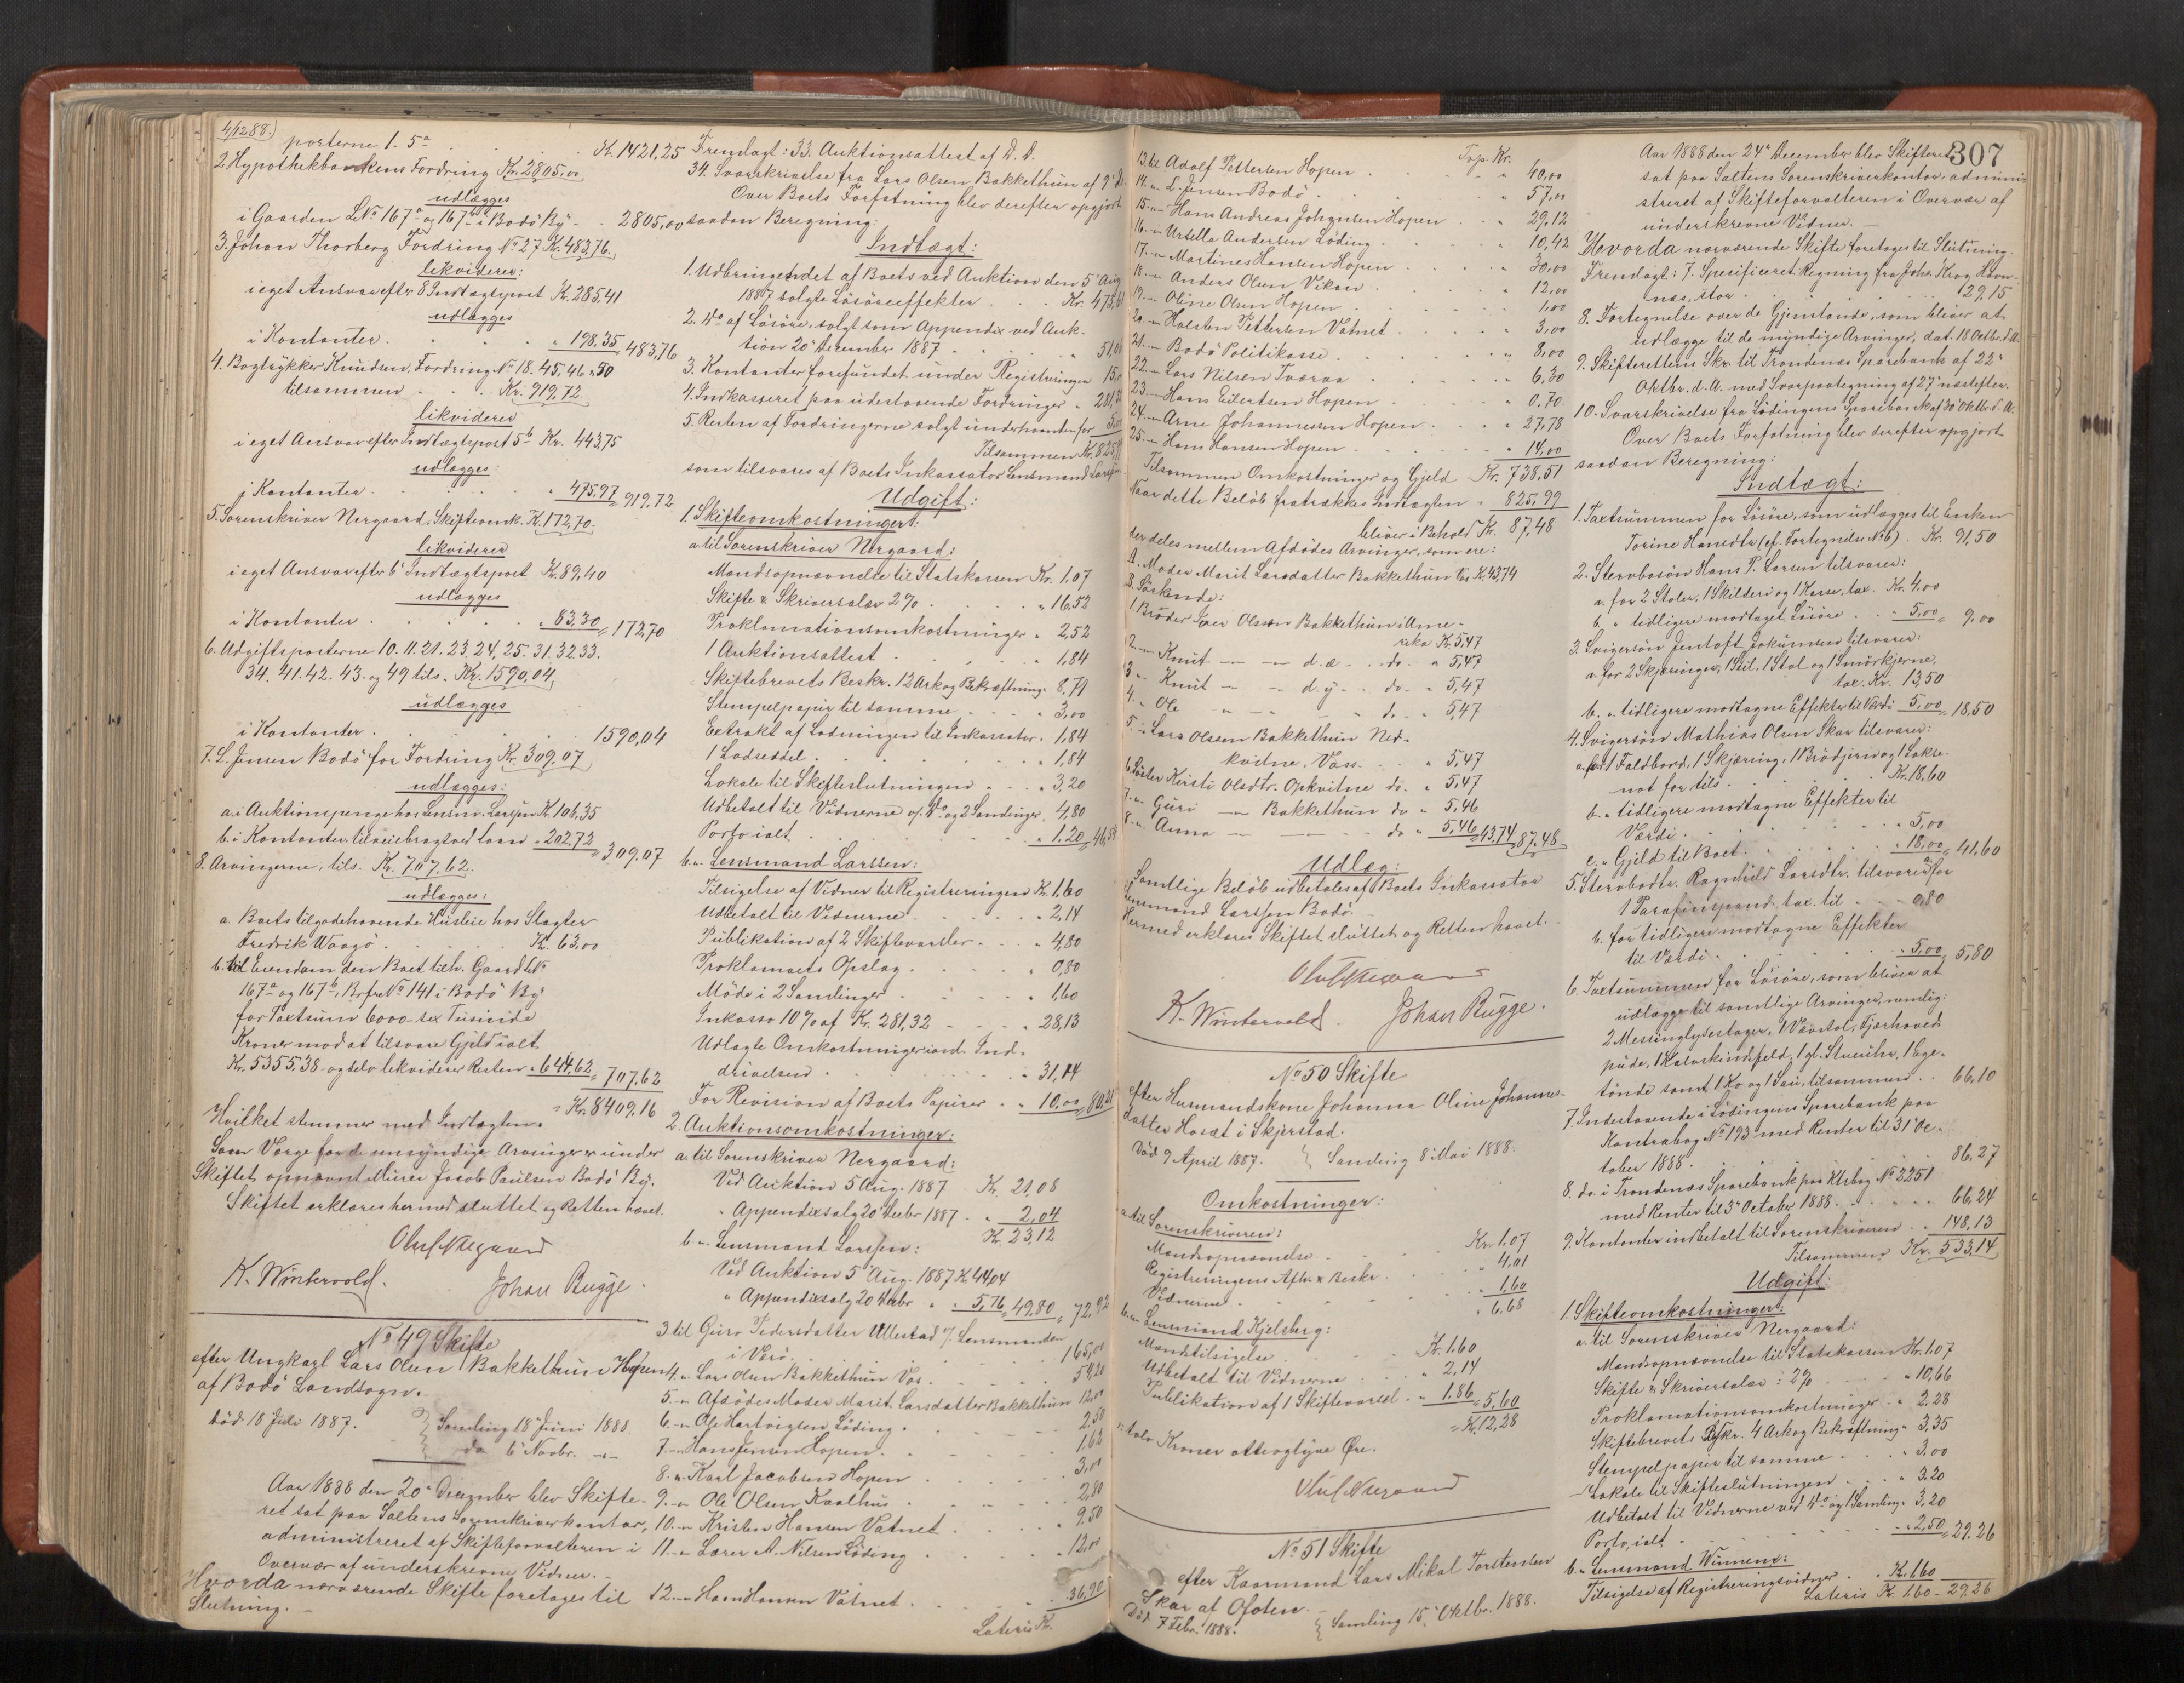 4/12 88.
posterne 1. 5a . . . Kr. 1421,25
2. Hypothekbankens Fordring Kr. 2805,00
udlægges
i Gaarden LNo 167a og 167b i Bodö By . . 2805,00
3. Johan Thorberg Fordring No 27 Kr. 483,76.
likviderer:
i eget Ansvar efter 8 Indtægtspost Kr. 285,41
udlægges
i Kontanter . . . " 198.35 = 483,76
4. Bogtrykker Knudsen, Fordring No 18. 45. 46 & 50
tilsammen . . . Kr. 919,72
likviderer
i eget Ansvar efter Indtægtspost 5b Kr. 443,75
udlægges:
i Kontanter . . . " 475,97 = 919,72
5. Sorenskriver Nergaard, Skifteomk. Kr. 172,70.
likviderer
i eget Ansvar efter 6' Indtægtspost Kr. 89,40
udlægges
i Kontanter . . . " 83.30 = 172,70
6. Udgiftsposterne 10. 11. 21. 23. 24. 25. 31. 32. 33.
34. 41. 42. 43. og 49 tils. Kr. 1590,04
udlægges
i Kontanter . . . 1590,04
7. L. Jensen Bodö for Fordring Kr. 309,07
udlægges:
a. i Auktionspenge hos Lensm. Larssen Kr. 106,35
b. i Kontanter, tilveiebragt ved Laan " 202,72 = 309,07
8. Arvingerne, tils. Kr. 707,62.
udlægges:
a. Boets tilgodehavende Husleie hos Slagter
Fredrik Waagö . . . Kr. 63,00
b. til Eiendom den Boet tilh. Gaard LNo
167a og 167b, Brfr. No 141 i Bodö By
for Taxtsum 6000 - sex Tusinde
Kroner mod at tilsvare Gjeld ialt
Kr. 5355.38 og selv likviderer Resten " 644,62 = 707,62
= Kr. 8409,16
Hvilket stemmer med Indtægten.
Som Værge for de umyndige Arvinger er under
Skiftet opnævnt Murer Jacob Paulsen Bodö By.
Skiftet erklæres hermed sluttet og Retten hævet.
Oluf Nergaard
K. Wintervold. Johan Bugge.
No 49 Skifte
efter Ungkarl Lars Olsen Bakkethun Hopen
af Bodö Landsogn.
Död 18 Juli 1887. Samling 18' Juni 1888.
do 6' Novbr. -"-
Aar 1888 den 20' December blev Skifte-
ret sat paa Saltens Sorenskriverkontor,
administreret af Skifteforvalteren i
Overvær af underskrevne Vidner. -
Hvorda nærværende Skifte foretoges til
Slutning. -
Fremlagt: 33. Auktionsattest af D. D.
34. Svarskrivelse fra Lars Olsen Bakkethun af 9' d.
Over Boets Forfatning blev derefter opgjort
saadan Beregning:
Indtægt:
1. Udbringendet af Boets ved Auktion den 5' Aug
1887 solgte Lösöreeffekter . . Kr. 473,
2. Do af Lösöre, solgt som Appendix ved Auk-
tion 20' December 1887 . . . " 51,
3. Kontanter forefundet under Registeringen 15,
4. Indkasseret paa udestaaende Fordringer " 281,
5. Resten af Fordringerne solgt underhaanden for 5,
Tilsammen Kr. 825,
som tilsvares af Boets Inkassator Lensmand Larssen
Udgift:
1. Skifteomkostninger:
a. til Sorenskriver Nergaard:
Mandsopnævnelse til Statskassen Kr. 1,07
Skifte & Skriversalær 2% . . . " 16,52
Proklamationsomkostninger " 2,52
1 Auktionsattest . . . " 1,84
Skiftebrevets Beskr. 12 Ark og Bekræftning " 8,79
Stempelpapir til samme . . . " 3,00
Extrakt af Lodningen til Inkassator . 1,84
1 Lodseddel . . . " 1,84
Lokale til Skifteslutningen . . . " 3,20
Udbetalt til Vidnerne v/ Do og 2 Samlinger. 4,80
Porto ialt . . . " 1.20 =
b. " Lensmand Larssen:
Tilsigelse af Vidner til Registreringen Kr. 1.60
Udbetalt til Vidnerne . . . " 2,14
Publikation af 2 Skiftevarsler . . . " 4,80
Proklamaets Opslag . . . " 0,80
Möde i 2 Samlinger . . . " 1,60
Inkasso 10% af Kr. 281,32 . . . " 28,13
Udlagte Omkostninger ved Ind-
drivelsen . . . " 31,14
For Revision af Boets Papirer . . " 10,00 =
2. Auktionsomkostninger:
a. til Sorenskriver Nergaard:
Ved Auktion 5 Aug. 1887 Kr. 21,08
" Appendixsalg 20 Decbr 1887 . " 2,04
Kr. 23,12
b. " Lensmand Larssen:
Ved Auktion 5' Aug. 1887 Kr. 44,04
" Appendixsalg 20 Decbr " " 5,76 = 49,80 = 72,92
3 til Guro Pedersdatter Ullestad v/ Lensmanden
i Vos . . . 165,00
4. " Lars Olsen Bakkethun Vos . . . 54,20
5. " Afdödes Moder Marit Larsdatter Bakkethun 12,00
6. " Ole Hartvigsen Löding . . . 2,50
7. " Hans Jensen Hopen . . . 1,62
8. " Karl Jacobsen Hopen . . . 3,00
9. " Ole Olsen Kaalhus . . . 2,80
10. " Kristen Hansen Vatnet . . . 9,50
11. " Lærer A. Nilsen Löding . . . " 12,00
12. " Hans Hansen Vatnet . . . 36,90
Lateris Kr.
Trsp. Kr.
13. til Adolf Pettersen Hopen . . . " 40,00
14. " L. Jensen Bodö . . . " 57,00
15. " Hans Andreas Johansen Hopen . . " 29,12
16. " Ursella Andersen Löding . . . " 10,42
17. " Martines Hansen Hopen . . . " 30,00
18. " Anders Olsen Vikan . . . " 12,00
19. " Oline Olsen Hopen . . . 1,00
20. " Halsten Pettersen Vatnet . . . " 3,00
21. " Bodö Politikasse . . . " 8,00
22. " Lars Nilsen Tveraa . . . " 6,30
23. " Hans Eilertsen Hopen . . . " 0.70
24. " Arne Johannessen Hopen . . . " 27,78
25. " Hans Hansen Hopen . . . " 14,00
Tilsammen Omkostninger og Gjeld Kr. 738,51
Naar dette Belöb fratrækkes Indtægten " 825,99
bliver i Behold Kr. 87,48
der deles mellem Afdödes Arvinger, som ere:
A. Moder Marit Larsdatter Bakkethun Vos Kr. 43,74
B. Söskende:
1. Broder Iver Olsen Bakkethun i Ame-
rika Kr. 5,47
2. " Knut — — d. æ. . do. " 5,47
3. " Knut — — d. y. . do. " 5,47
4. " Ole " — — do. " 5,47
5. " Lars Olsen Bakkethun Ned-
kvitne, Voss. . . " 5,47
6. Söster Kirsti Olsdtr. Opkvitne do. " 5,47
7. " Guri — Bakkethun do " 5,46
8. " Anna — — do " 5,46 = 43,74 = 87,48
Udlæg:
Samtlige Belöb udbetales af Boets Inkassator
Lensmand Larssen Bodö. -
Hermed erklæres Skiftet sluttet og Retten hævet. -
Oluf Nergaard
K. Wintervold. Johan Bugge.
No 50 Skifte
efter Husmandskone Johanna Oline Johannes-
datter Hosæt i Skjerstad.
Död 9 April 1887. Samling 8' Mai 1888.
Omkostninger:
a. til Sorenskriveren:
Mandsopnævnelse . . . Kr. 1.07
Registreringens Afh. & Beskr. . . . " 4,01
Vidnerne . . . " 1,60
= 6,68
b. " Lensmand Kjelsberg:
Mandstilsigelse . . . Kr. 1.60
Udbetalt til Vidnerne . . . " 2,14
Publikation af 1 Skiftevarsel . " 1.86 = 5,60
= Kr. 12,28
: tolv Kroner otteogtyve Öre.
Oluf Nergaard
No 51 Skifte
efter Kaarmand Lars Mikal Torstensen
Skar af Ofoten. -
Död 7 Febr. 1888. Samling 15' Oktbr. 1888.
307
Aar 1888 den 24' December blev Skifteret
sat paa Saltens Sorenskriverkontor, admini-
streret af Skifteforvalteren i Overvær af
underskrevne Vidner. -
Hvorda nærværende Skifte foretoges til Slutning.
Fremlagt: 7. Specificeret Regning fra Johs. Krog
, stor . . . 129,15
8. Fortegnelse over de Gjenstande, som bliver at
udlægge til de myndige Arvinger, dat. 18 Octbr. d. A.
9. Skifterettens Skr. til Trondenæs Sparebank af 22'
Oktbr. d. A. med Svarpaategning af 27' næstefter.
10. Svarskrivelse fra Lödingens Sparebank af 30' Oktbr. d. A.
Over Boets Forfatning blev derefter opgjort
saadan Beregning:
Indtægt:
1. Taxtsummen for Lösöre, som udlægges til Enken
Torine Hansdtr (cf. Fortegnelse No 6) . Kr. 91,50
2. Stervbosön Hans P. Larsen tilsvarer:
a. for 2 Stoler, 1 Skilderi og 1 Karse, tax. Kr. 4,00
b. " tidligere modtaget Lösöre . . " 5,00 = 9,00
3. Svigersön Jentoft Jokumsen tilsvarer:
a. for 2 Skjæringer, 1 Stil. 1 Stol og 1 Smörkjerne,
tax. Kr. 13,50
b. " tidligere modtagne Effekter til Værdi " 5,00 = 18,50
4. Svigersön Mathias Olsen Skar tilsvarer:
a. for 1 Faldbord, 1 Skjæring, 1 Brödjern og 1 Lakse-
not for tils. . . Kr. 18,60
b. " tidligere modtagne Effekter til
Værdi . . . " 5,00
c. " Gjeld til Boet . . . " 18,00 = 41,60
5. Stervbodtr. Ragnhild Larsdtr. tilsvarer a) for
1 Parafinspand, tax. til . . . 0,80
b. for tidligere modtagne Effekter
til Værdi . . . " 5,00 = 5,80
6. Taxtsummen for Lösöre, som bliver at
udlægge til samtlige Arvinger, nemlig:
2 Messinglysestager, 1 Vævstol, Fjærhoved-
pude, 1 Kalveskindsfeld, 1 gl. Stueuhr, 1 Ege-
tönde samt 1 Ko og 1 Sau, tilsammen . . 66,10
7. Indestaaende i Lödingens Sparebank paa
Kontrabog No 193 med Renter til 31' Oc-
tober 1888 . . . 86,27
8. do. i Trondenæs Sparebank paa Ktrbog No 2251
med Renter til 3' October 1888 . . . 66,24
9. Kontanter indbetalt til Sorenskriveren . . " 148,13
Tilsammen Kr. 533,14
Udgift:
1. Skifteomkostninger:
a. til Sorenskriver Nergaard:
Mandsopnævnelse til Statskassen Kr. 1.07
Skifte & Skriversalær: 2% . . . " 10,66
Proklamationsomkostninger . " 2,28
Skiftebrevets Beskr. 4 Ark og Bekræftning " 3,35
Stempelpapir til samme . . . " 3.00
Lokale til Skifteslutningen . . . " 3.20
Udbetalt til Vidnerne ved Do og 1 Samling " 3,20
Porto, ialt . . . " 2,50 = 29.26
b. " Lensmand
Tilsigelse af Registreringsvidner . . Kr. 1.60
Lateris Kr. 1.60 - 29.26